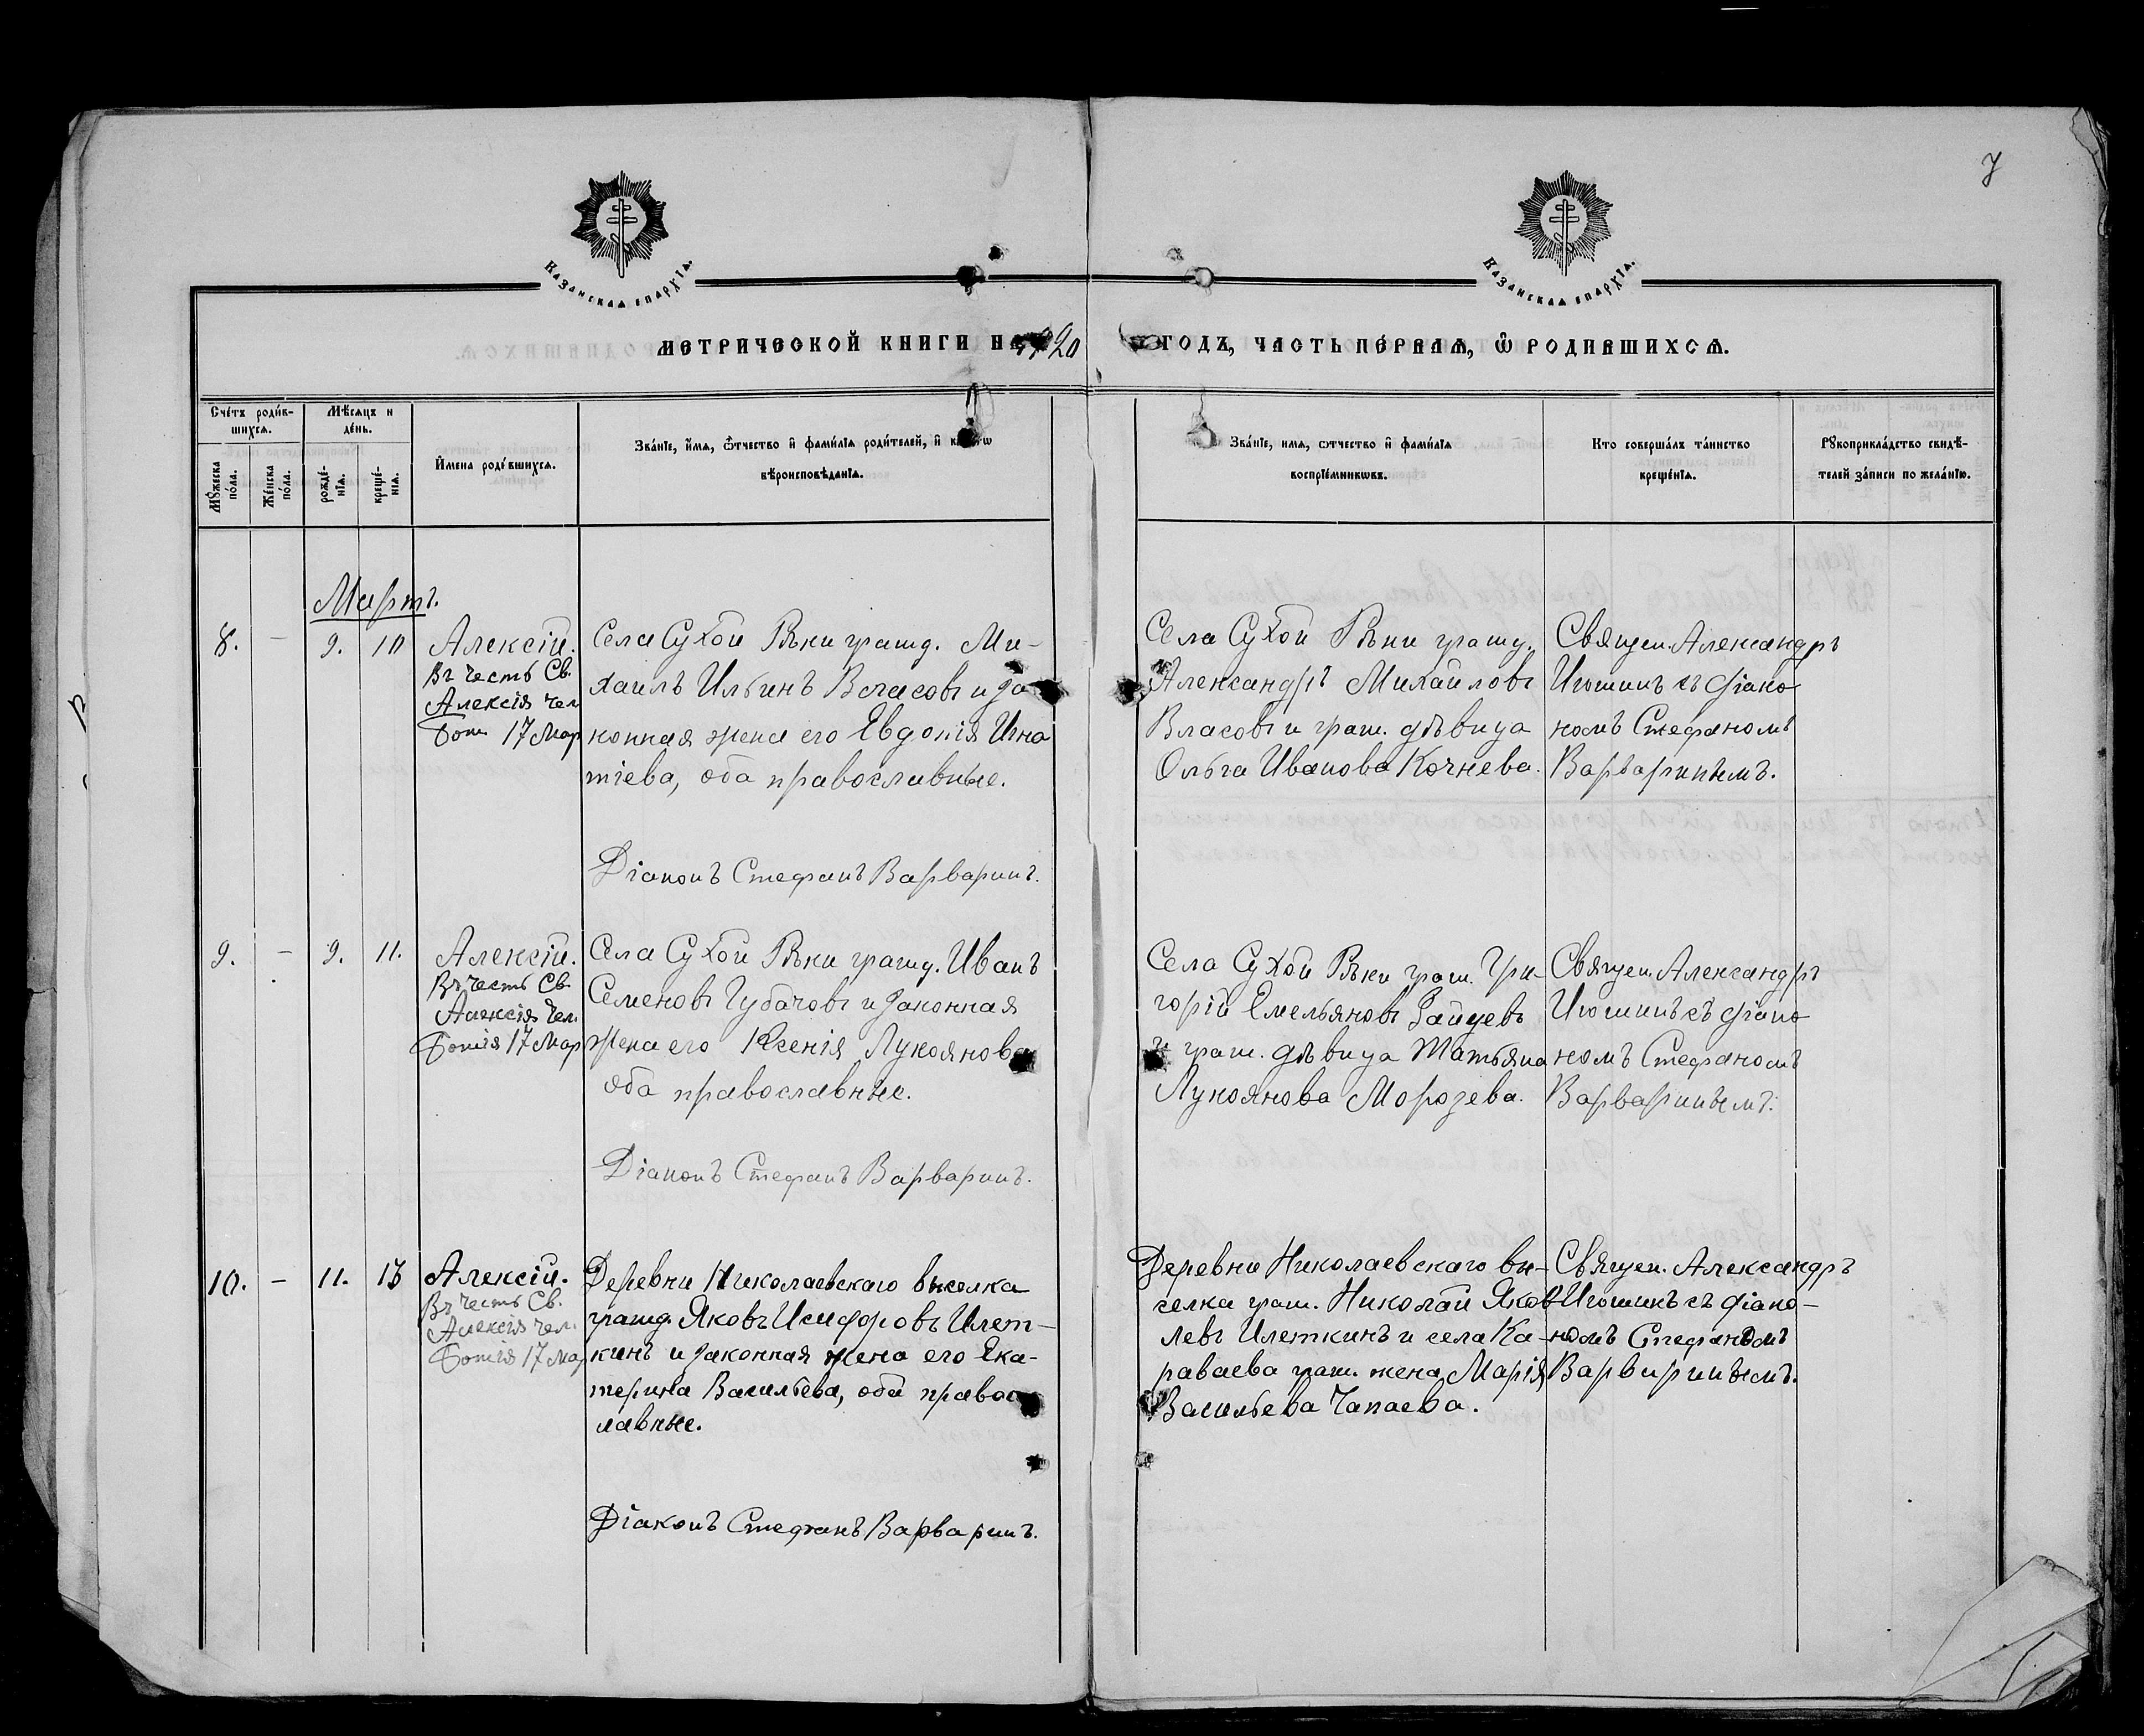 7
Казанская епархїа.
Казанская епархїа.
МЕТРИЧЕСКОЙ КНИГИ НА 1920 ГОДЪ, ЧАСТЬ ПЕ́РВАѦ, Ѡ҆ РОДИВШИХСѦ.
Сче́тъ роди́в-
шихсѧ.
Мѣ́сѧцъ и
де́нь.
Мꙋ́жеска
по́ла.
Же́нска
по́ла.
рожде́-
нїѧ.
креще́-
нїѧ.
И҆мена роди́вшихсѧ.
Зва́нїе, и҆́мѧ, ѻ҆́тчество и҆ фами́лїѧ роди́телей, и҆
вѣроисповѣ́данїѧ.
Зва́нїе, имѧ, ѻтчество и҆ фами́лїѧ
воспрїе́мниковъ.
Кто соверша́лъ та́инство
креще́нїѧ.
Рꙋкоприкла́дство свидѣ́-
телей за́писи по жела́нїю.
Мартъ.
8. - 9. 10 Алексій.
Въ честь Св.
Алексія чел.
Бож. 17 Мар
Села Сухой Рѣки гражд. Ми-
хаилъ Ильинъ Власовъ и за
конная жена его Евдокія Игна
тіева, оба православные.
Діаконъ Стефанъ Варваринъ.
Села Сухой Рѣки гражд.
Александръ Михайловъ
Власовъ и граж. дѣвица
Ольга Иванова Кочнева.
Священ. Александръ
Игошинъ съ діако
номъ Стефаномъ
Варваринымъ.
9. - 9. 11. Алексій.
Въ честь Св.
Алексія Чел.
Божія 17 Мар
Села Сухой Рѣки гражд. Иванъ
Семеновъ Губачовъ и законная
жена его Ксенія Лукоянова
оба православные.
Діаконъ Стефанъ Варваринъ.
Села Сухой Рѣки граж. Гри-
горій Емельяновъ Зайцевъ
и граж. дѣвица Татьяна
Лукоянова Морозева.
Священ. Александръ
Игошинъ съ діако
номъ Стефаномъ
Варваринымъ.
10. - 11. 13 Алексій.
Въ честь Св.
Алексія чел.
Божія 17 Мар
Деревни Николаевскаго выселка
гражд. Яковъ Исидоровъ Илет-
кинъ и законная жена его Ека-
терина Васильева, оба правос
лавные.
Діаконъ Стефанъ Варваринъ.
Деревни Николаевскаго вы-
селка граж. Николай Яков
левъ Илеткинъ и села Ка-
раваева граж. жена Марія
Васильева Чапаева.
Священ. Александръ
Игошинъ съ діако-
номъ Стефаномъ
Варваринымъ.